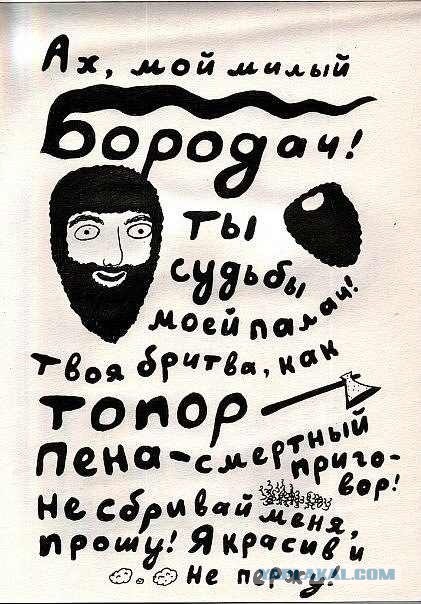 Ах, мой милый
Бородач!
ты
судьбы
моей палач!
твоя бритва, как
топор
пена-смертный
приго-
вор!
не сбривай меня,
прошу! Я красив и
не пержу!
YAPLAKAL.COM